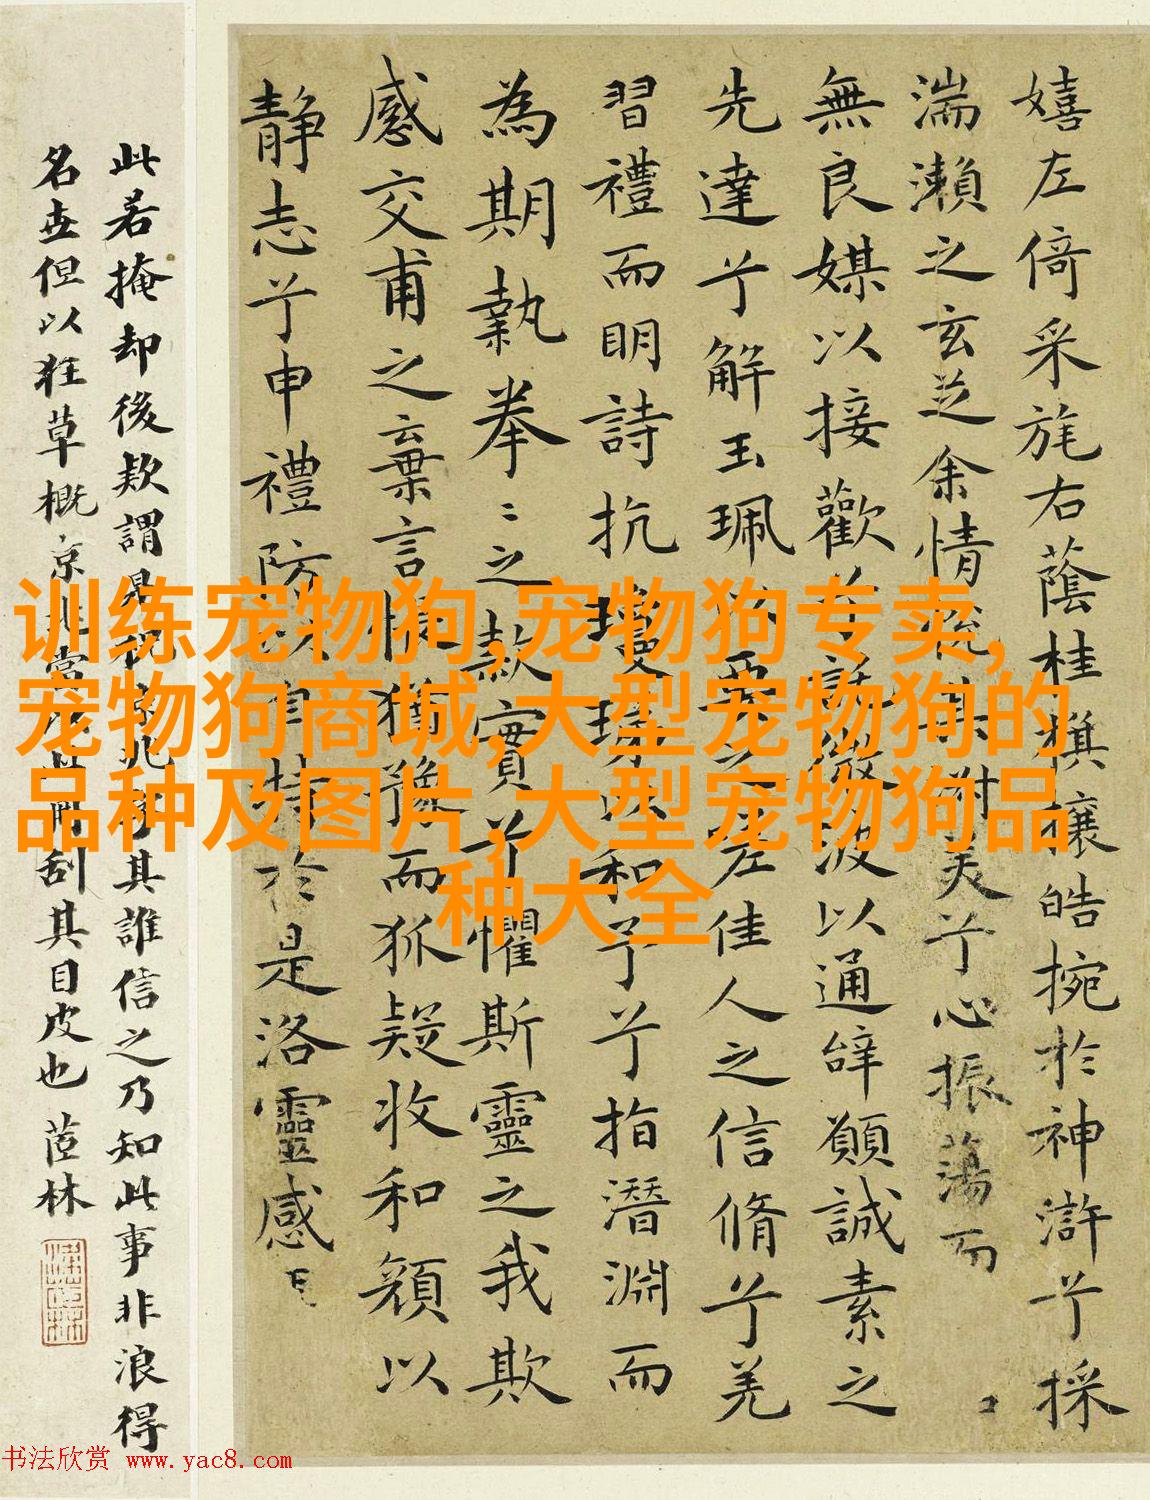 嬉左倚采旄右蔭桂旗攘皓捥於神滸兮採
湍瀨之玄芝余情悅其淑美兮心振蕩而
無良媒以接歡兮託微波以通辝願誠素之
先達兮解玉珮以要之嗟佳人之信脩兮羌
習禮而明詩抗瓊珶以和予兮指潛淵而
為期執拳〻之款實兮懼斯靈之我欺
感交甫之棄言悵猶豫而狐疑收和顏以
靜志兮申禮防以自持於是洛靈感
此若掩却後欵謂是
其誰信之乃知此事非浪得
名世但以狂草概
刮其目皮也 茝林
训练宠物狗,宠物狗专卖,
宠物狗商城,大型宠物狗的
品种及图片,大型宠物狗品
种大全
书法欣赏 www.yac8.com